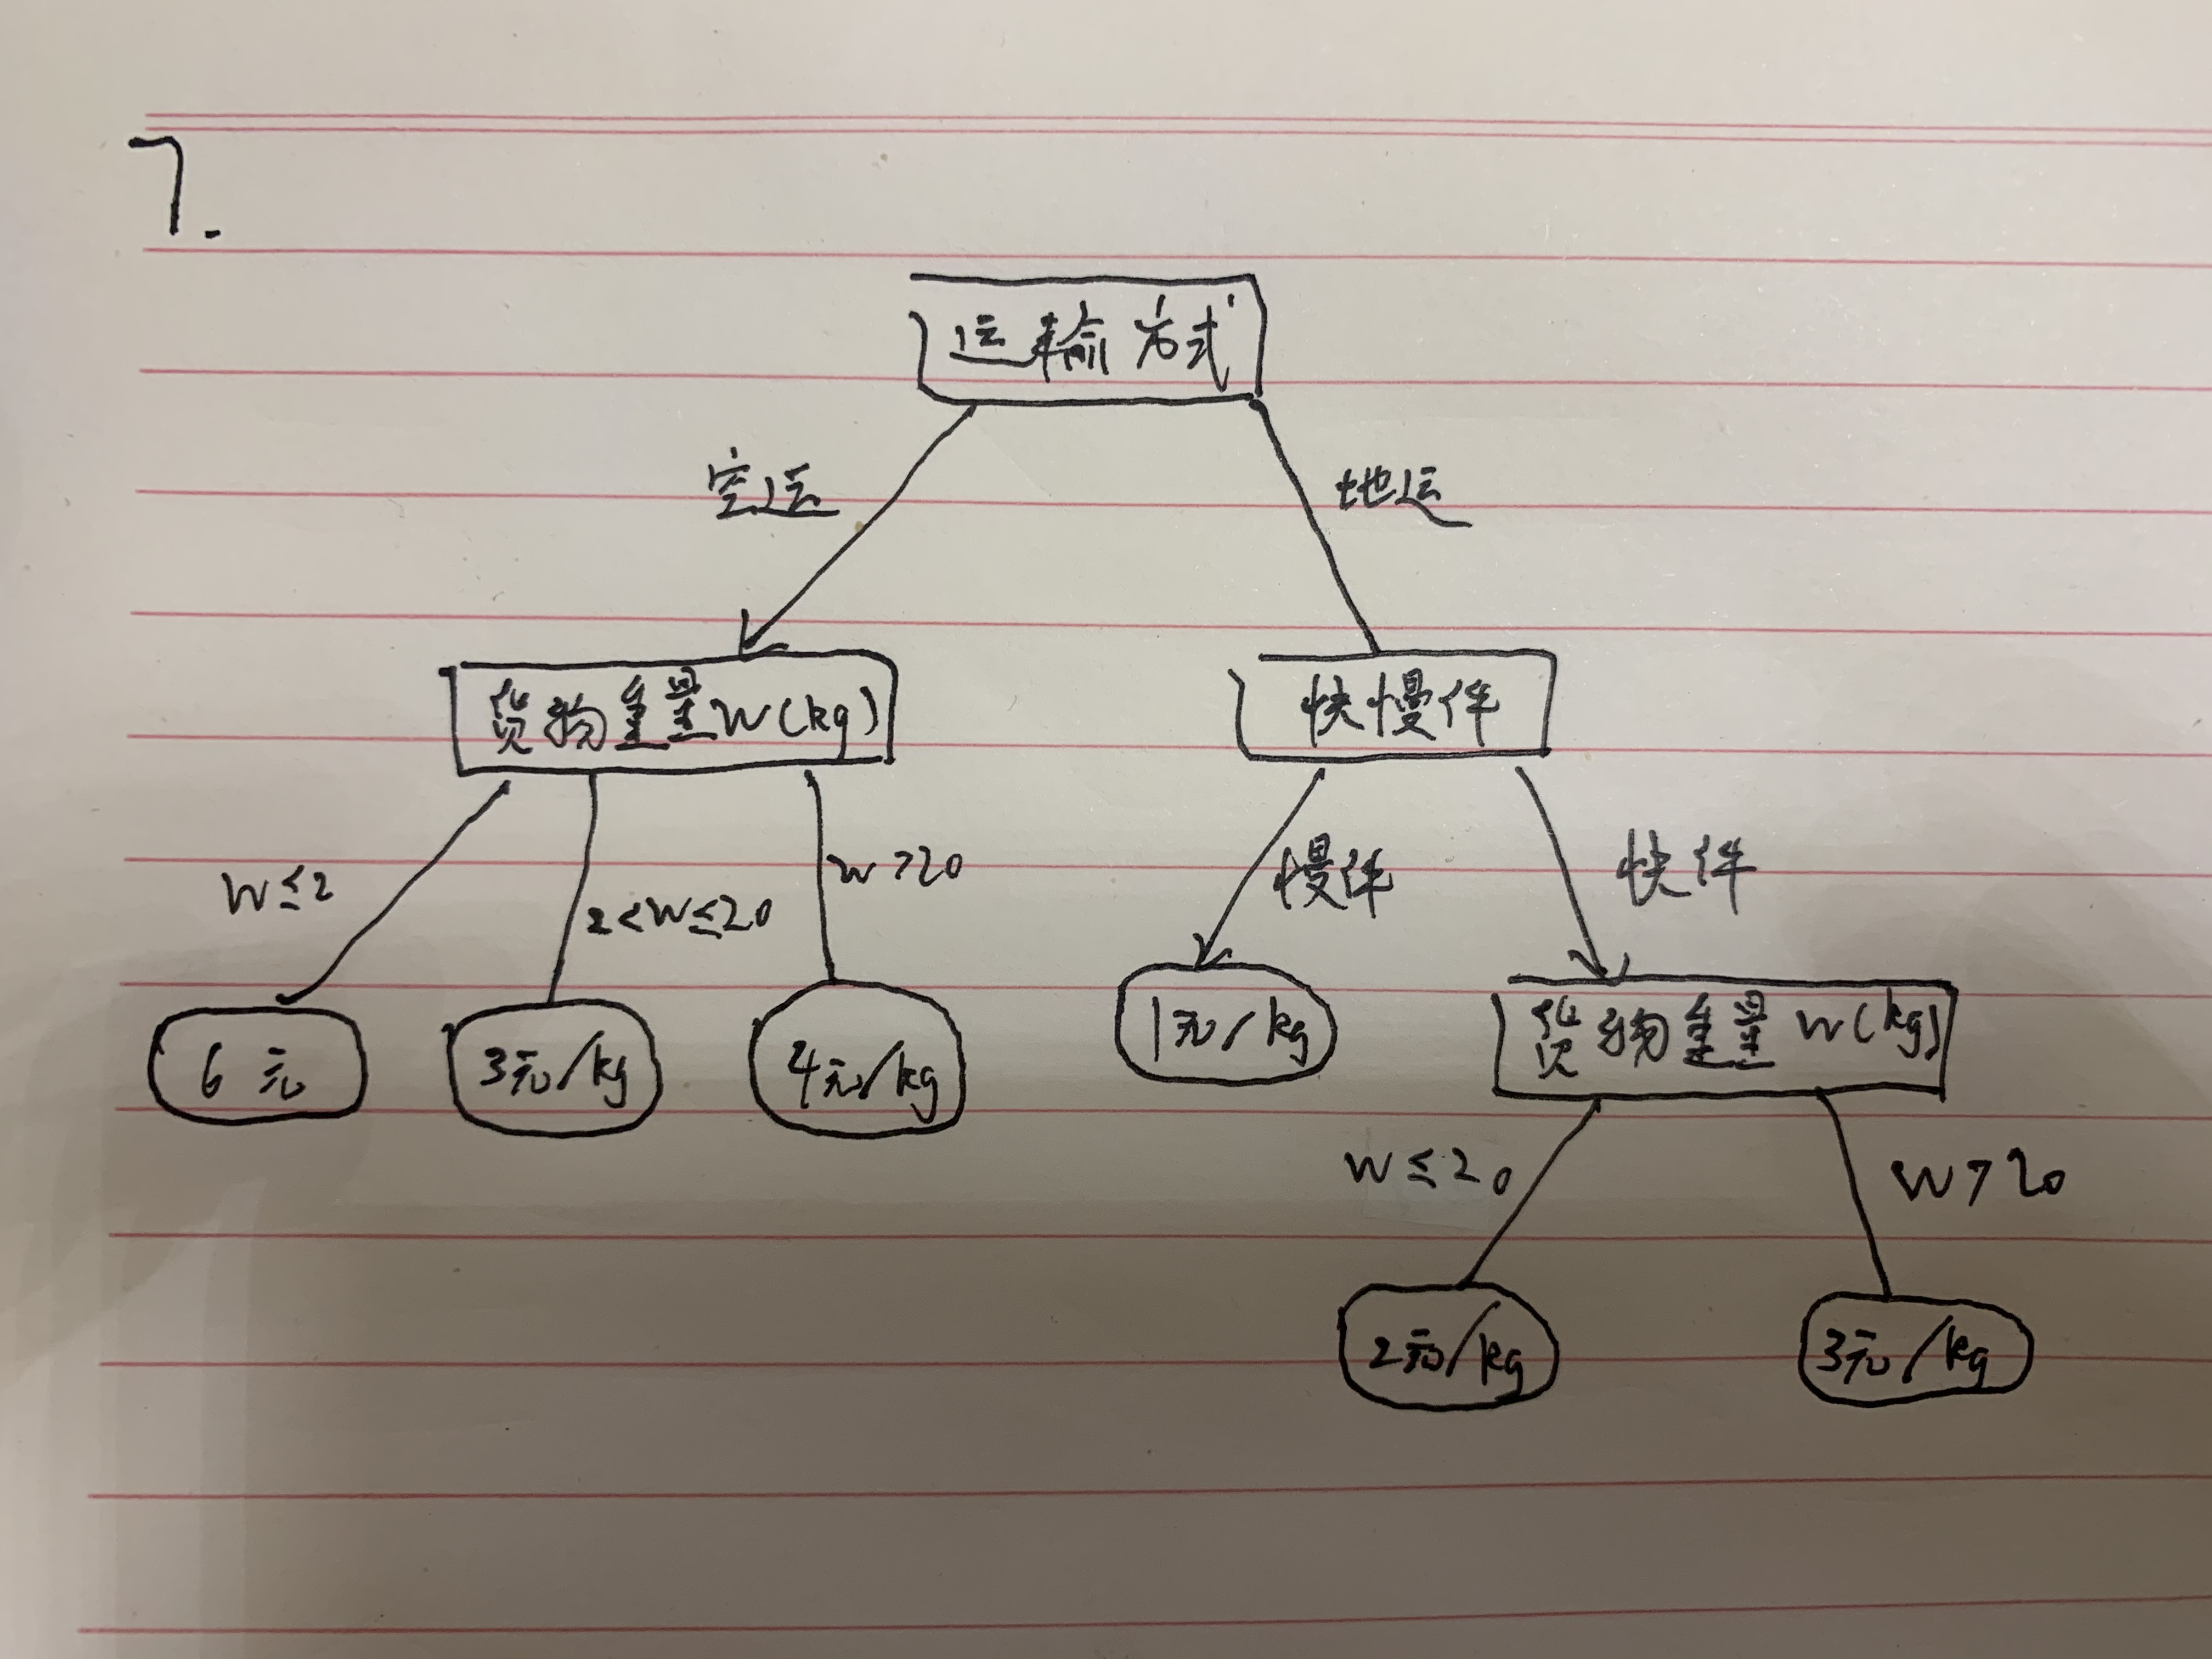 7.
运输方式
空运 地运
货物重量W(kg) 快慢件
W≤2 2<W≤20 W>20 慢件 快件
6元 3元/kg 4元/kg 1元/kg 货物重量W(kg)
W≤20 W>20
2元/kg 3元/kg